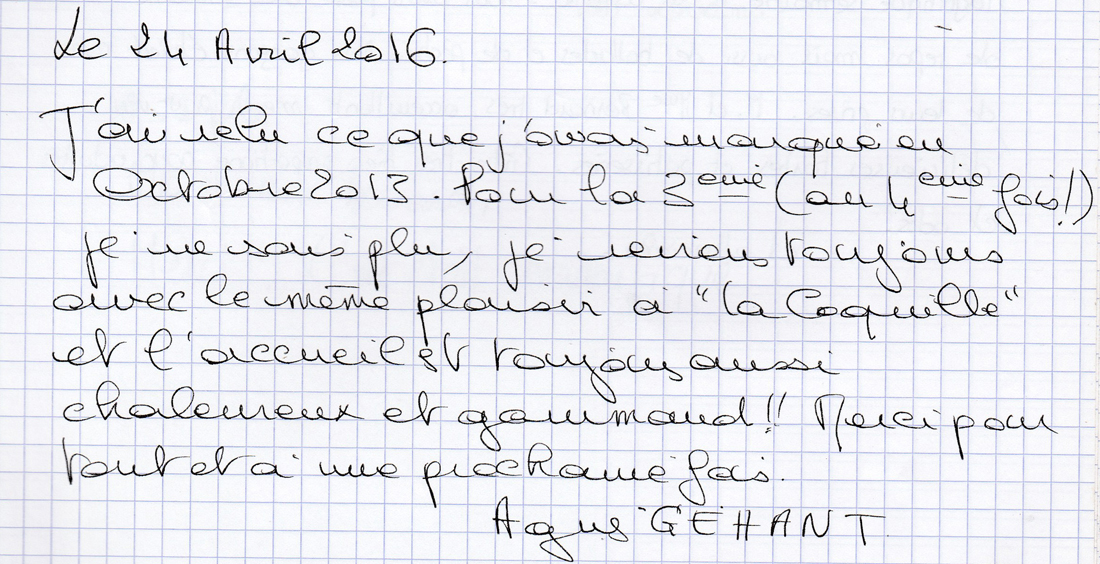 Le 24 Avril 2016.
J'ai relu ce que j'avais marqué en
Octobre 2013. Pour la 3eme (ou 4eme fois!!)
je ne sais plu, je reviens toujours
avec le même plaisir à "la Coquille"
et l'accueil est toujours aussi
chaleureux et gourmand!! Merci pour
tout et à une prochaine fois.
GEHANT